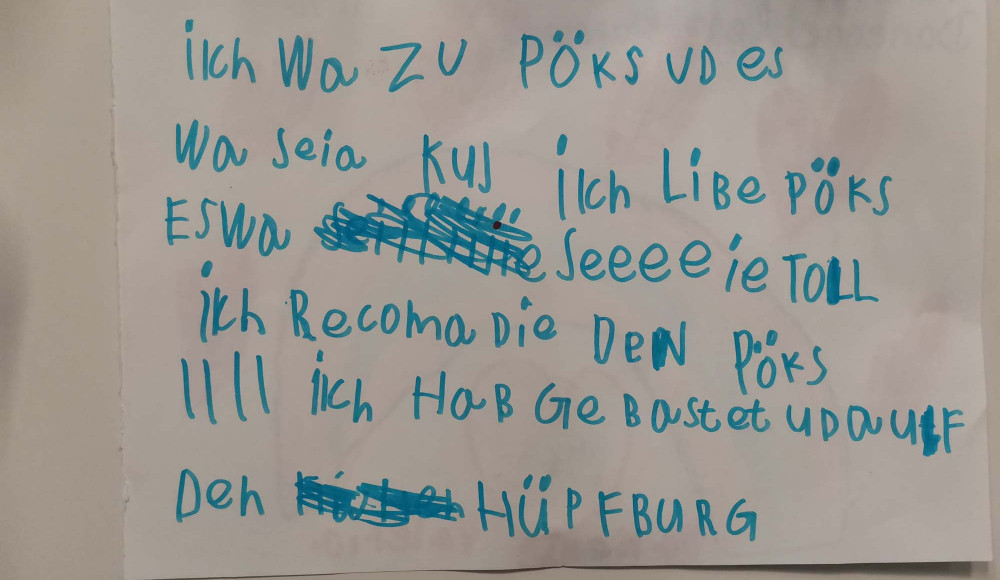 iich Wa ZU PÖKS UD es
Wa seia KUS iich LiBe PÖKS
ESWa Seeee ie TOLL
ikh Recoma Die DeN PÖKS
|||| iich HaB Ge Bastet UDaUF
Den HÜPFBURG